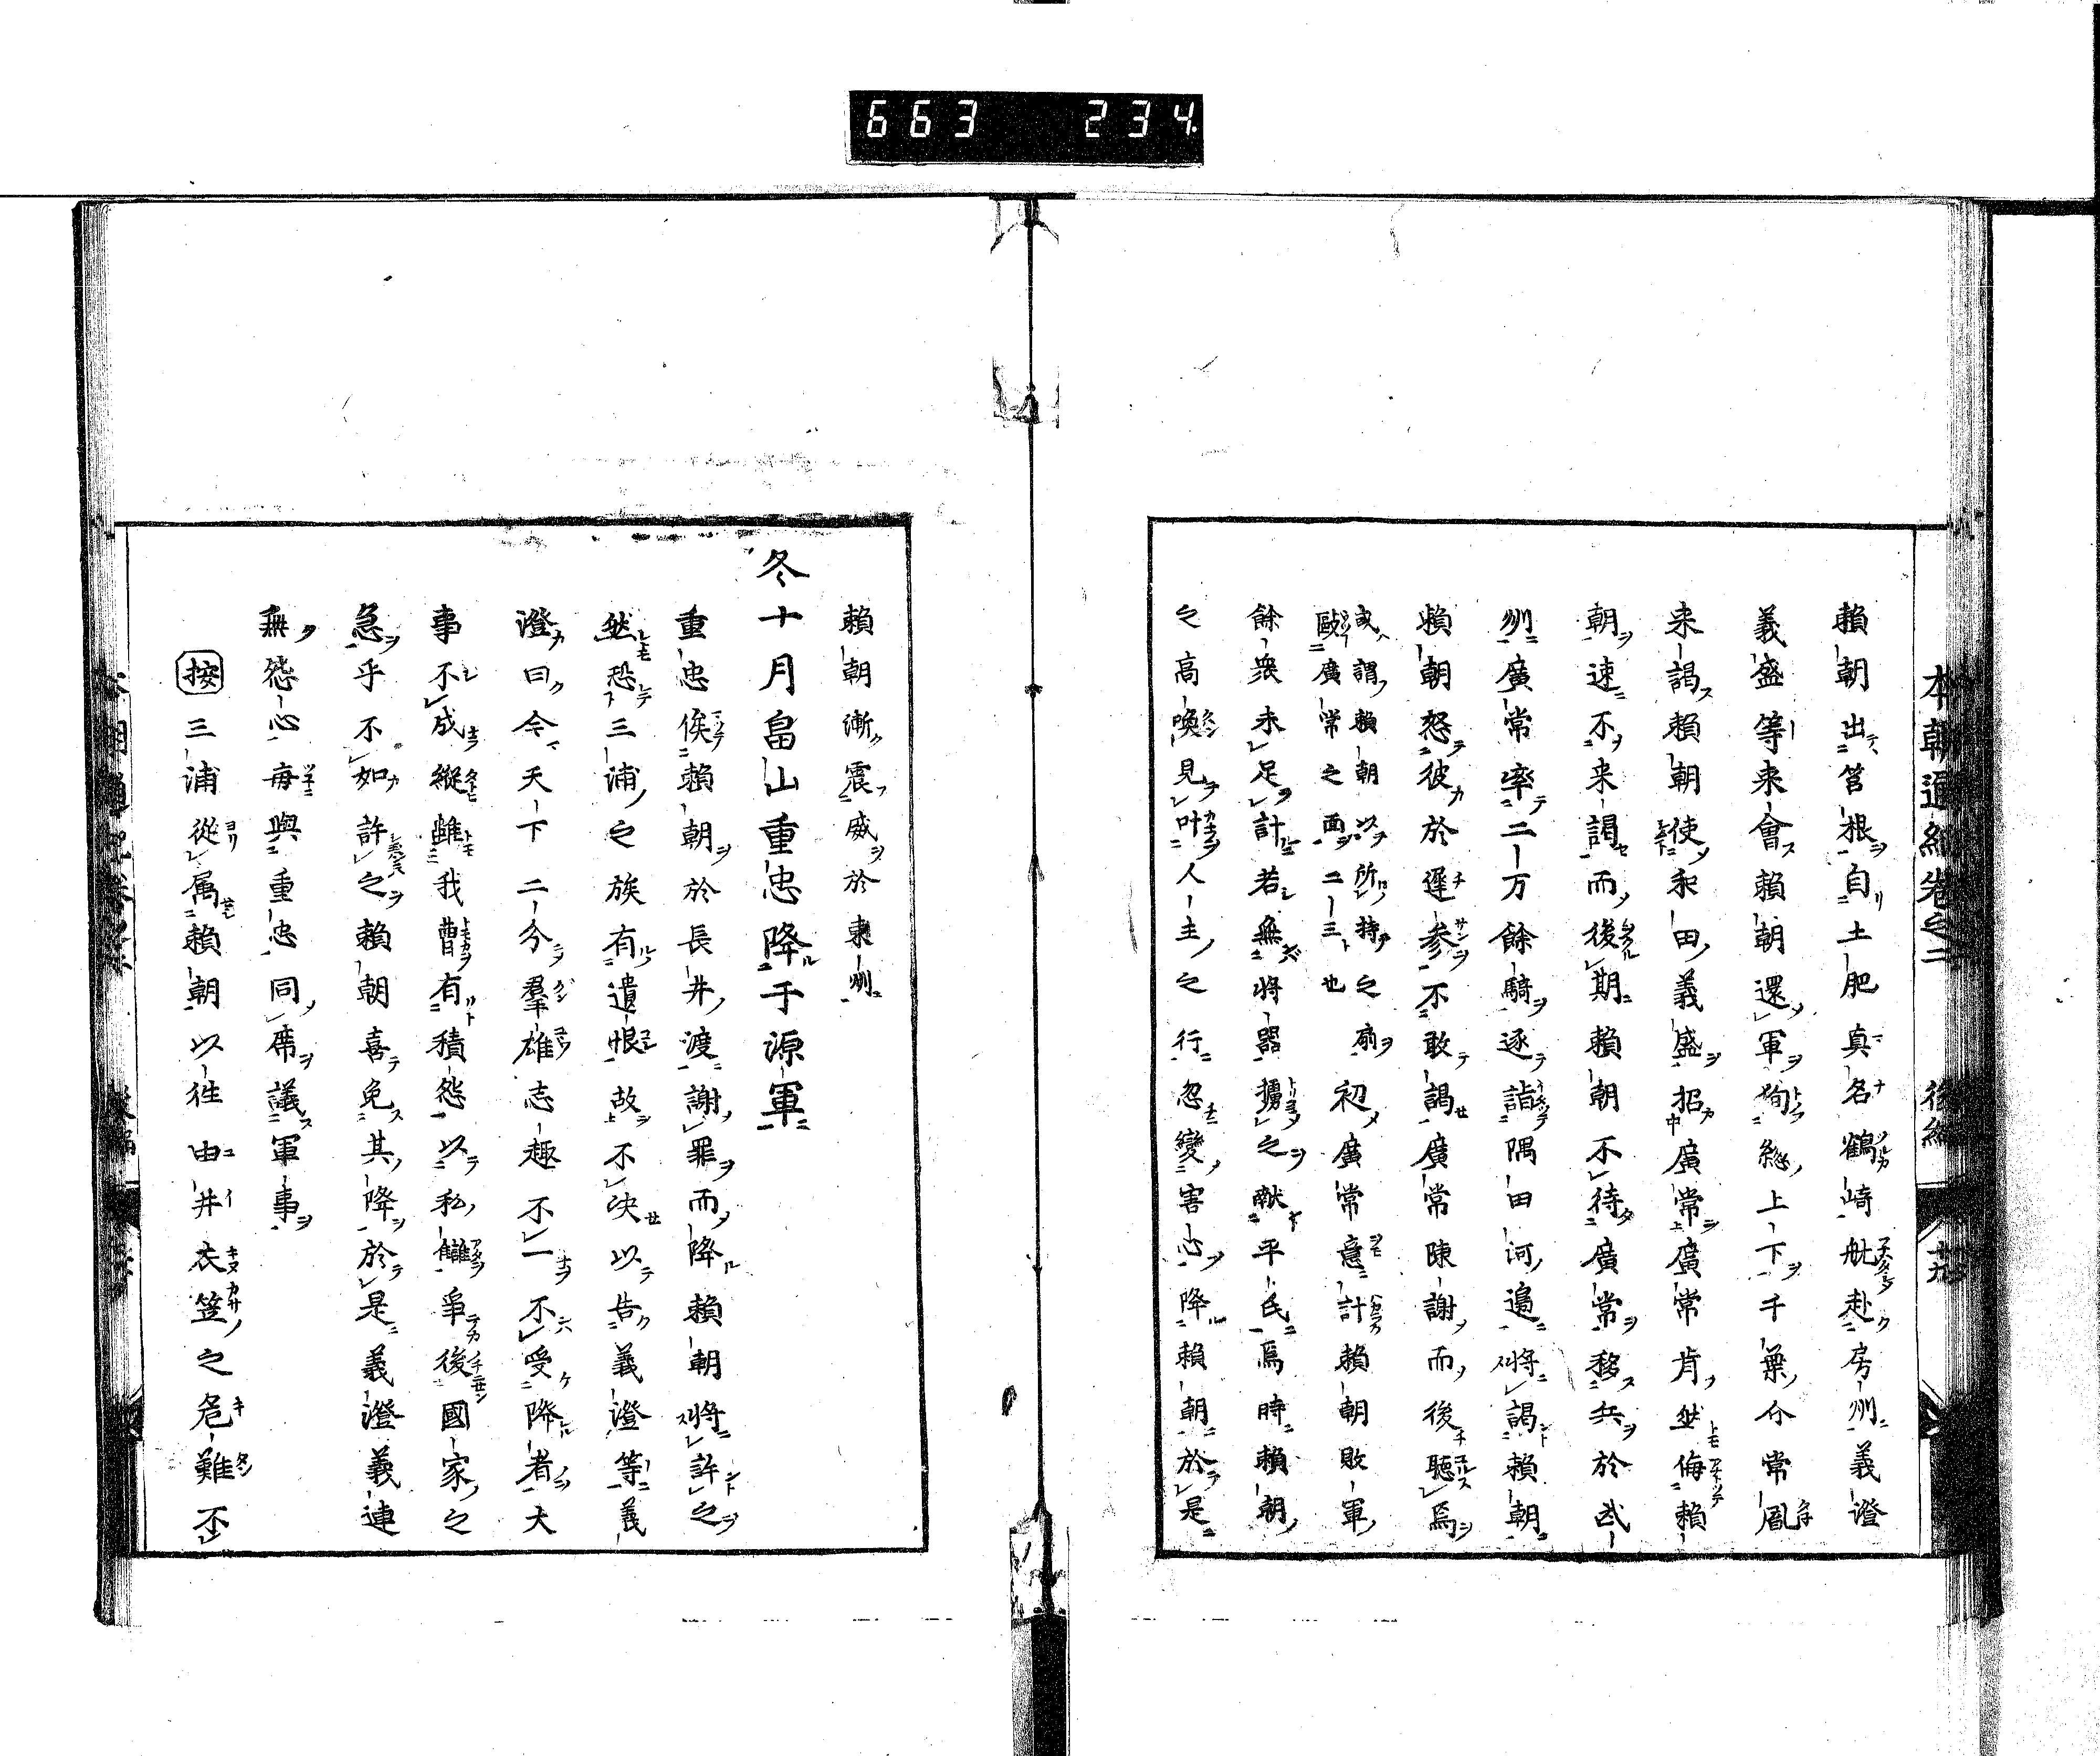 663 234
本朝通紀卷之二 後編 廿九
賴朝出筥根自土肥真名鶴崎舩赴房州義澄
義盛等来會賴朝還軍徇緫上下千葉介常胤
来謁賴朝使和田義盛招廣常廣常肯然侮賴
朝速不来謁而後期賴朝不待廣常移兵於武
州廣常率二万餘騎逐詣隅田河邉將謁賴朝
賴朝怒彼於遲参不敢謁廣常陳謝而後聴焉
或謂賴朝以所持之扇
毆廣常之面二三也
初廣常意計賴朝敗軍
餘衆未足計若無將器擄之献平氏焉時賴朝
之高喚見叶人主之行忽變害心降賴朝於是
賴朝漸震威於東州
冬十月畠山重忠降于源軍
重忠俟賴朝於長井渡謝罪而降賴朝將許之
然恐三浦之族有遺恨故不决以告義澄等義
澄曰今天下二分羣雄志趣不一不受降者大
事不成縱雖我曹有積怨以私讎爭後國家之
急乎不如許之賴朝喜免其降於是義澄義連
無怨心毎與重忠同席議軍事
按三浦從属賴朝以徃由井衣笠之危難不